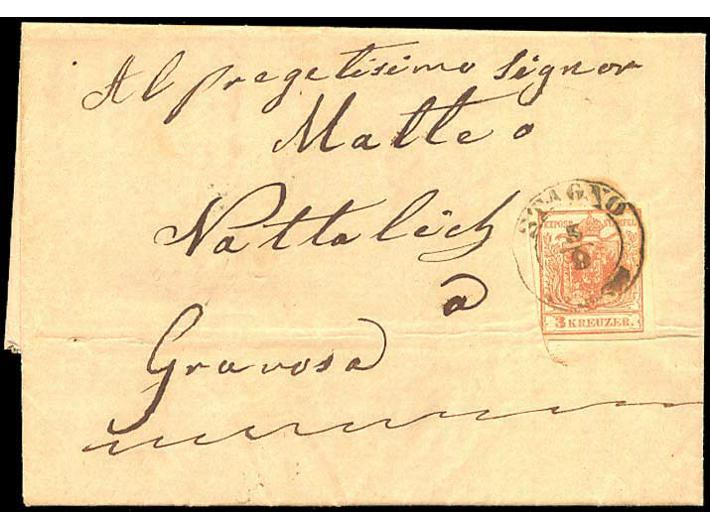 Al pregetisimo Signor
Matteo
Nattalich
a
Gravosa
STAGNO
5/9
STEMPEL
3 KREUZER.